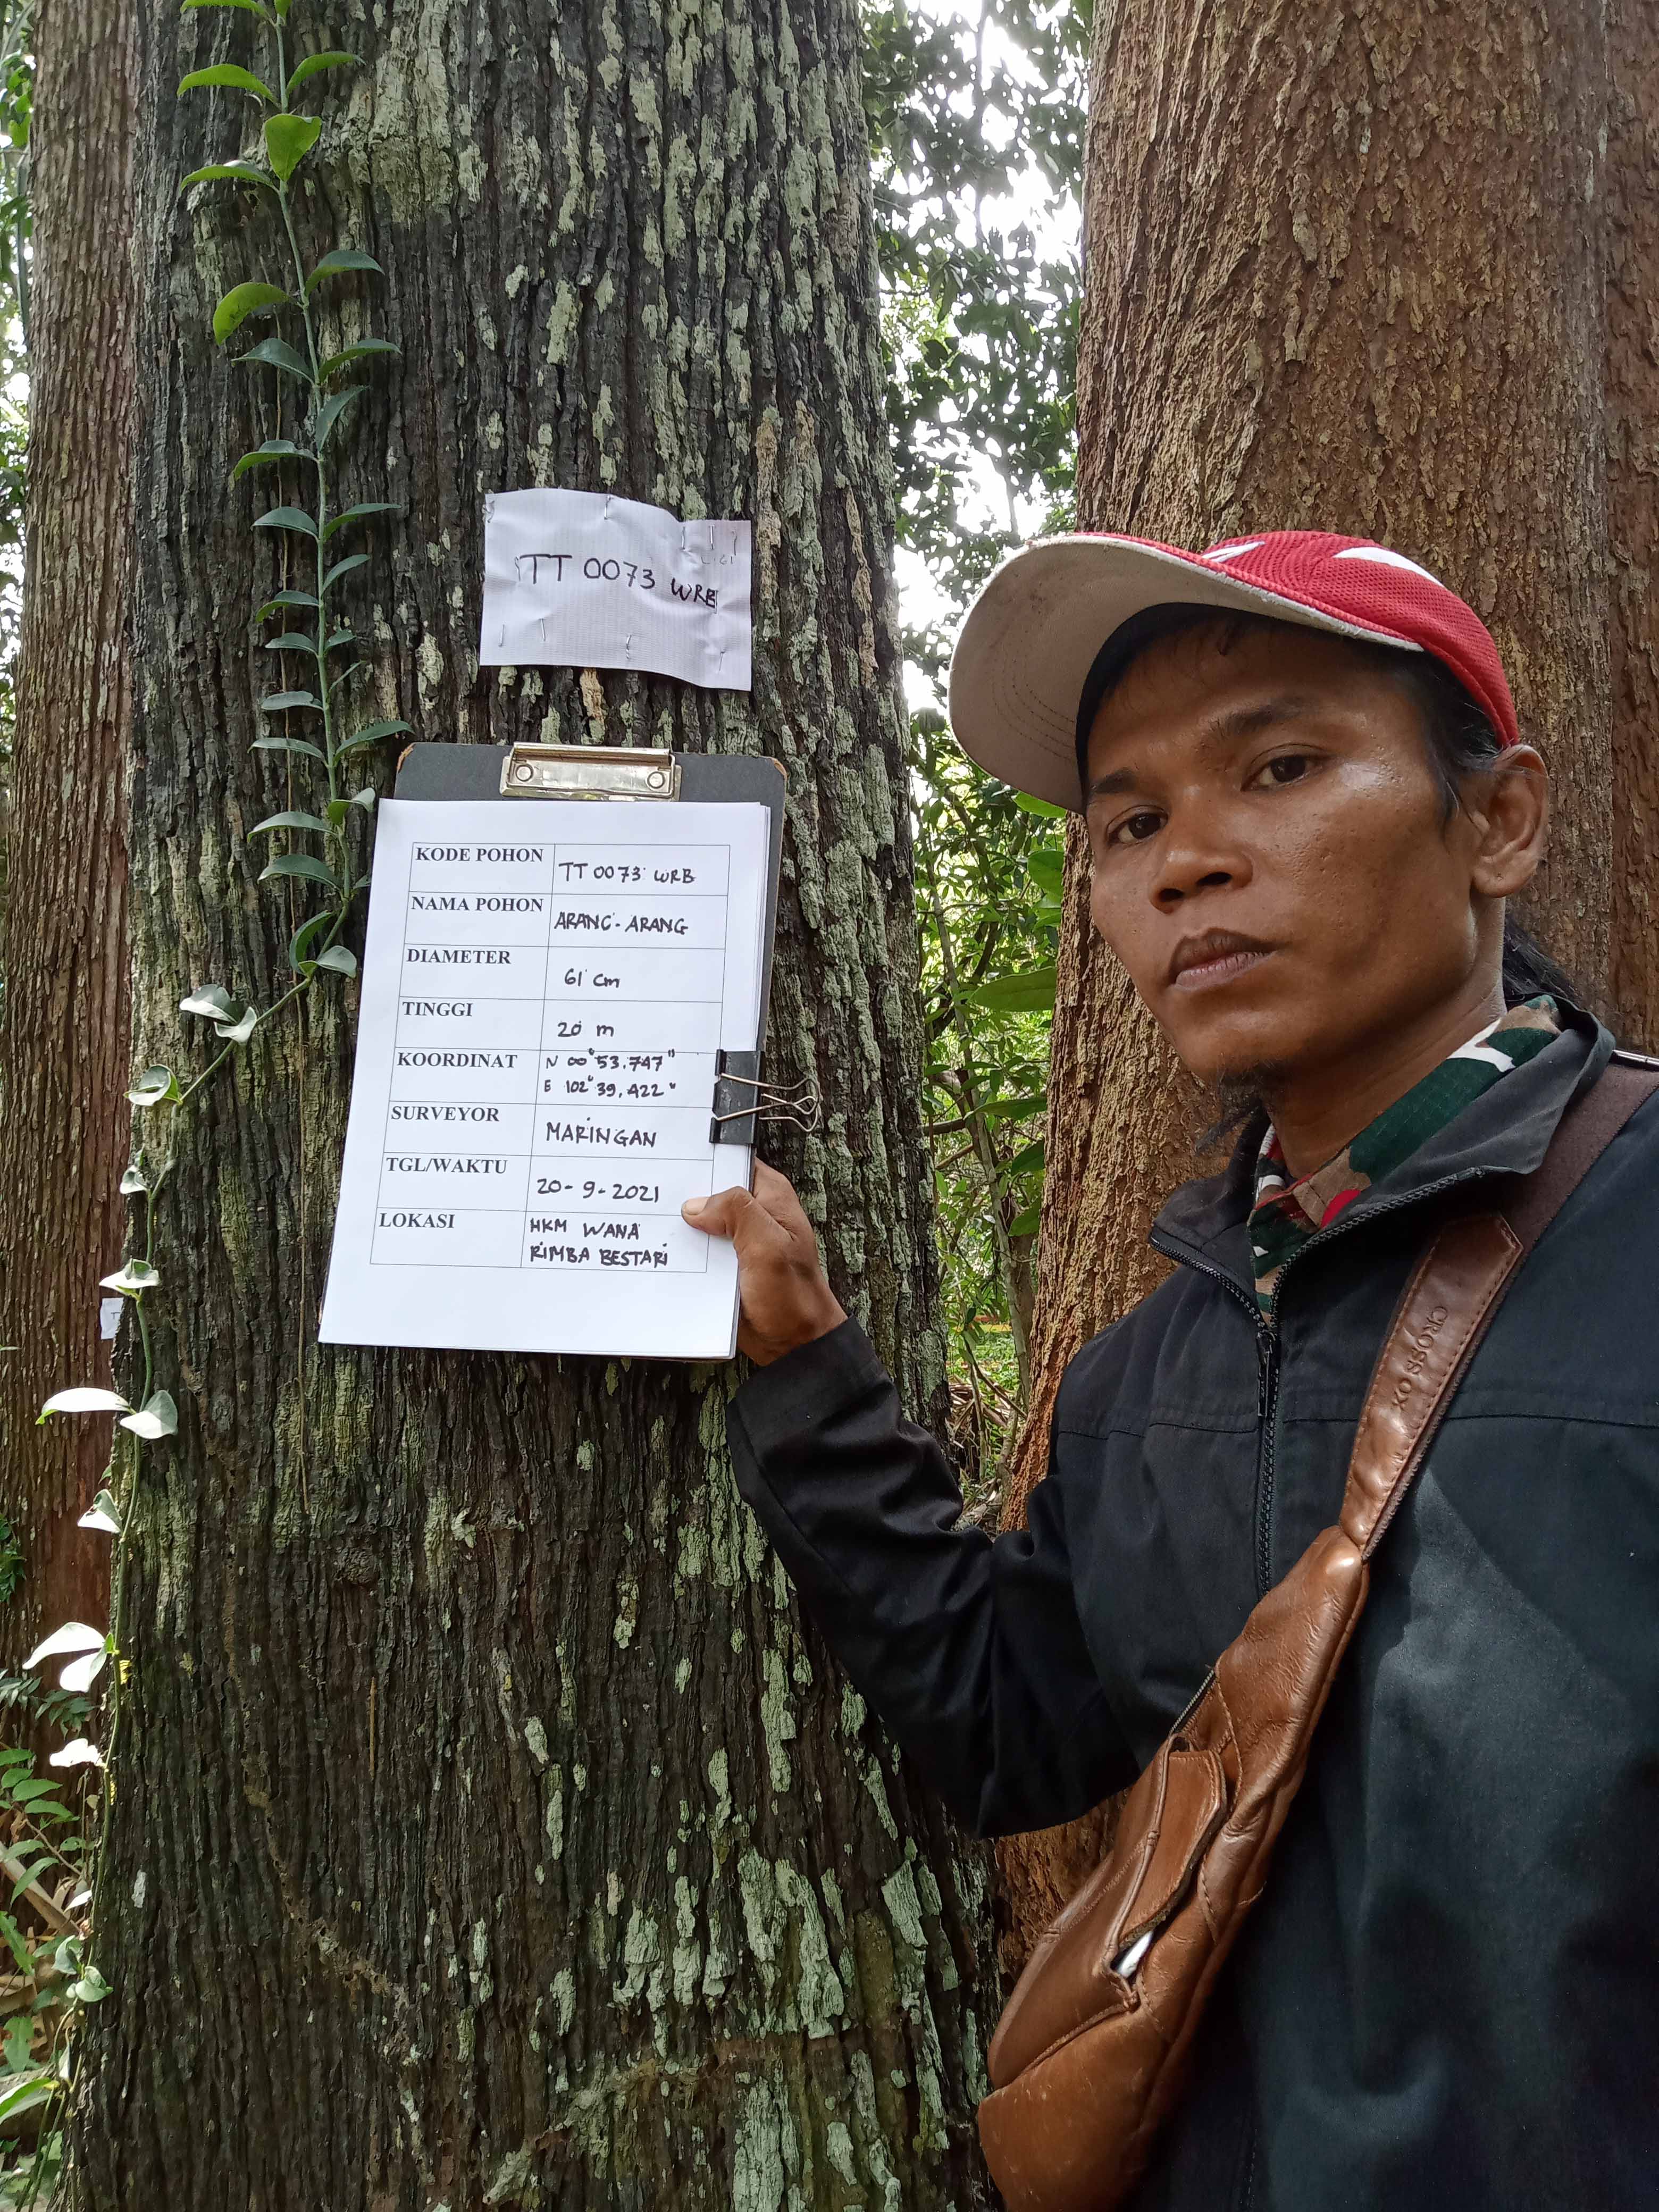 TT 0073 WRB
KODE POHON TT 0073 WRB
NAMA POHON ARANG-ARANG
DIAMETER 61 cm
TINGGI 20 m
KOORDINAT N 00° 53.747"
E 102° 39.422"
SURVEYOR MARINGAN
TGL/WAKTU 20-9-2021
LOKASI HKM WANA
RIMBA BESTARI
CROSS OX